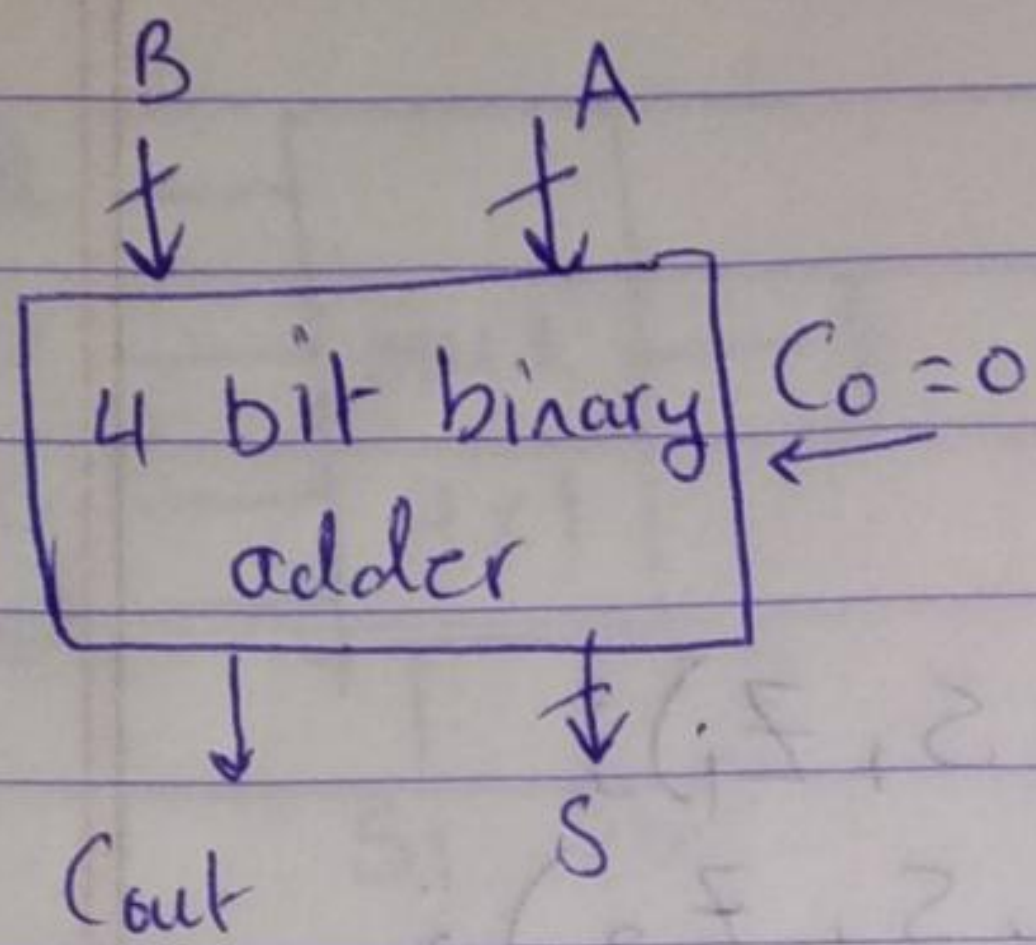 B A
4 bit binary
adder
C0 = 0
Cout
S